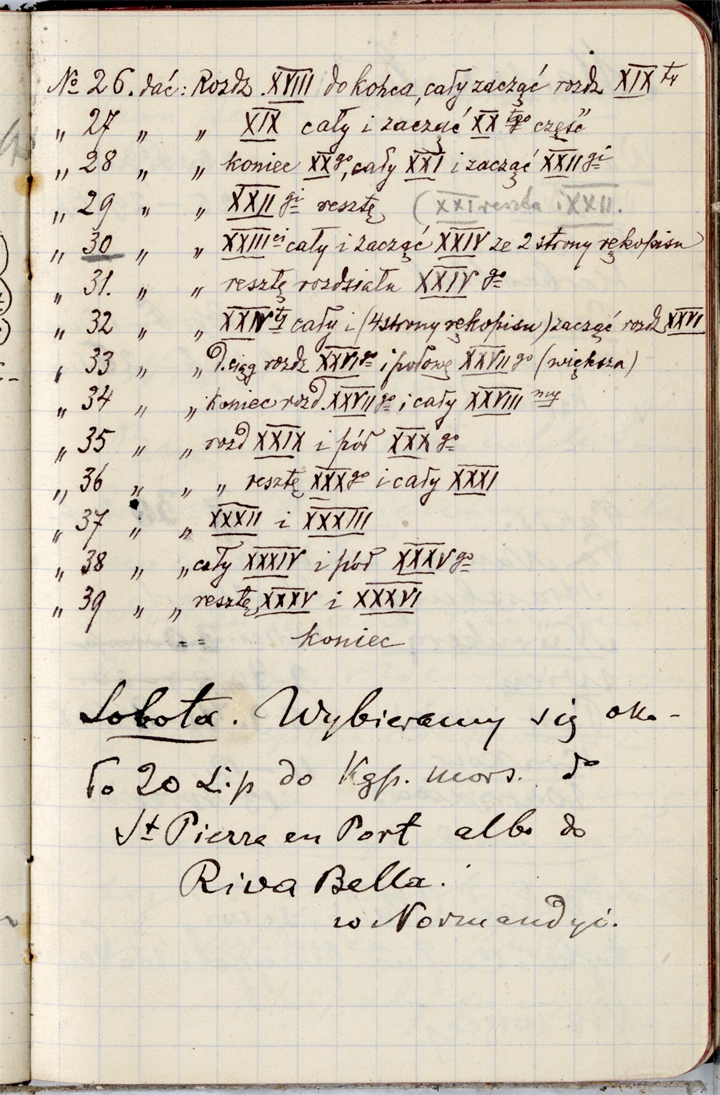 № 26. dać: Rozdz. XVIII do końca, cały zacząć rozdz XIX ty
„ 27 „ „ XIX cały i zacząć XX go część
„ 28 „ „ koniec XX go, cały XXI i zacząć XXII gi
„ 29 „ „ XXII gi resztę (XXI reszta i XXII.
„ 30 „ „ XXIII ci cały i zacząć XXIV ze 2 strony rękopisu
„ 31. „ „ resztę rozdziału XXIV go
„ 32 „ „ XXIV ty cały i (4 strony rękopisu) zacząć rozdz XXVI
„ 33 „ „ D. ciąg rozdz XXVI go i połowę XXVII go (większa)
„ 34 „ „ koniec rozd. XXVII go i cały XXVIII my
„ 35 „ „ rozd XXIX i pół XXX go
„ 36 „ „ „ resztę XXX go i cały XXXI
„ 37 „ „ XXXII i XXXIII
„ 38 „ „ cały XXXIV i pół XXXV go
„ 39 „ „ resztę XXXV i XXXVI
koniec
Sobota. Wybieramy się oko-
ło 20 Lip do Kąp. mors. do
St Pierre en Port albo do
Riva Bella.
w Normandyi.